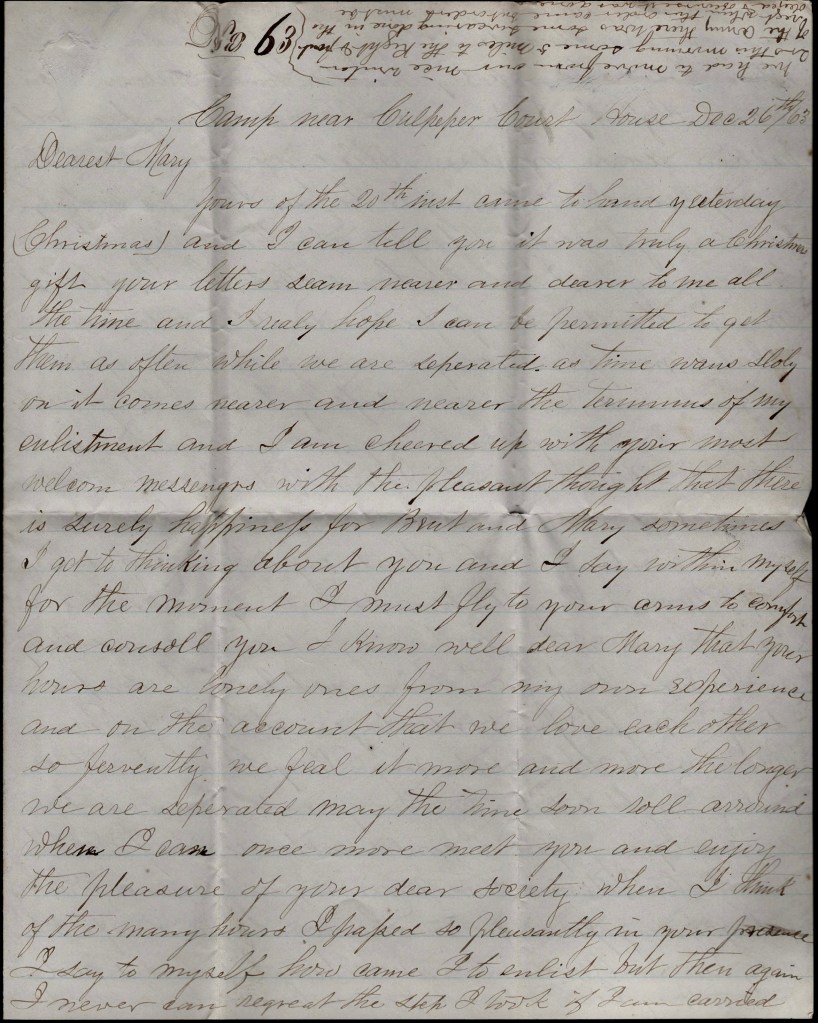 No 63
We had to move from our nice winter
this morning some 5 miles to the Right & front
of the Army there was some
when the order came
Camp near Culpeper Court House Dec 26th/63
Dearest Mary
yours of the 20th inst came to hand yesterday
(Christmas) and I can tell you it was truly a Christmas
gift your letters seam nearer and dearer to me all
the time and I realy hope I can be permitted to get
them as often while we are seperated. as time wans sloly
on it comes nearer and nearer the terminus of my
enlistment and I am cheered up with your most
welcom messengrs with the pleasant thought that there
is surely happiness for Brut and Mary sometimes
I get to thinking about you and I say within myself
for the moment I must fly to your arms to comfort
and consoll you I know well dear Mary that your
hours are lonely ones from my own experience
and on the account that we love each other
so fervently we feal it more and more the longer
we are seperated may the time soon roll arround
when I can once more meet you and enjoy
the pleasure of your dear society when I think
of the many hours I passed so pleasantly in your presence
I say to myself how came I to enlist but then again
I never can regreat the step I took if I am carried